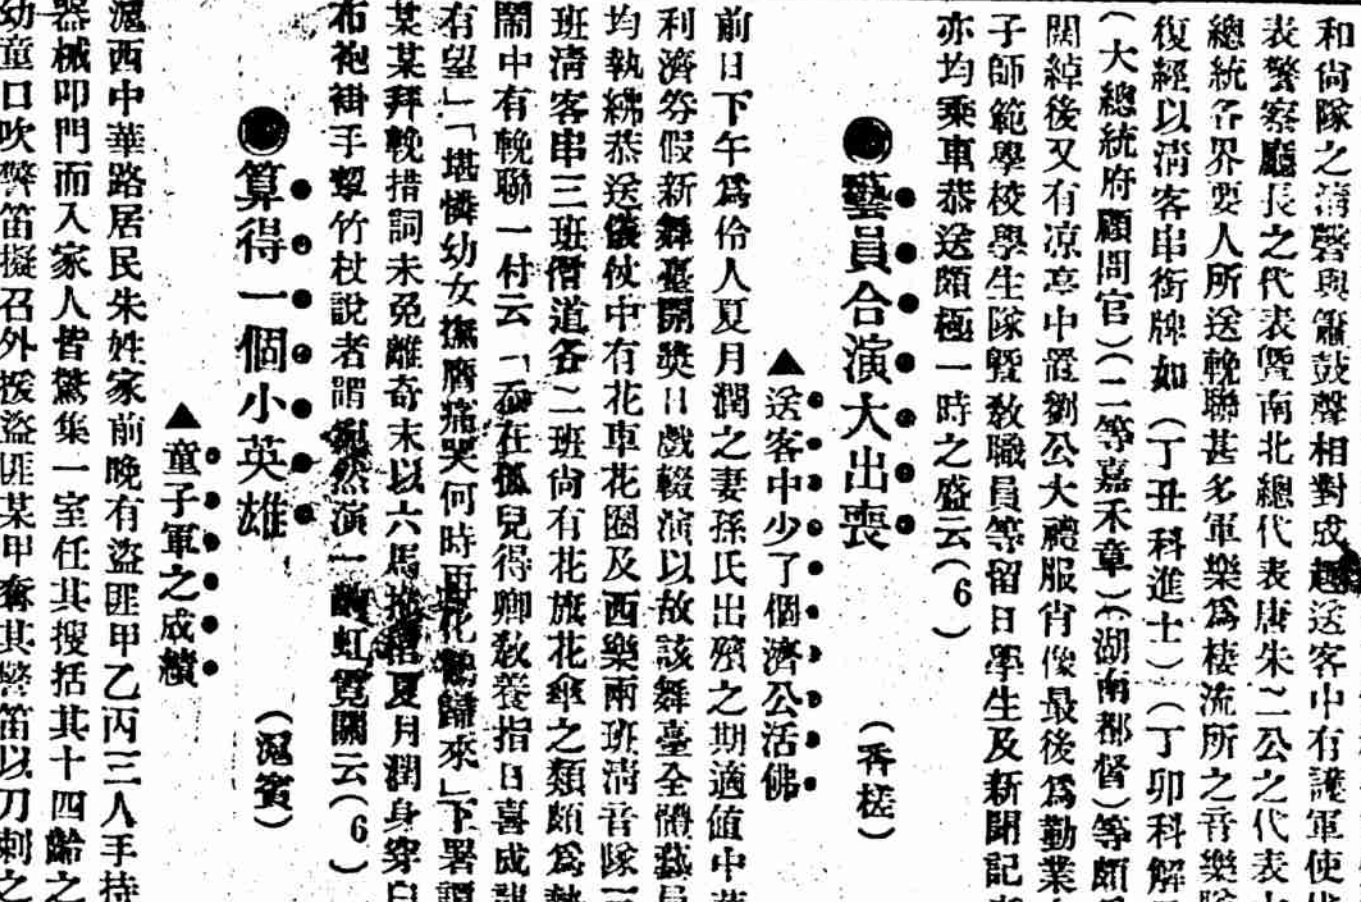 和尙隊之淸磬與簫鼓聲相對成趣送客中有護軍使代
表警察廳長之代表曁南北總代表唐朱二公之代表
總統各界要人所送輓聯甚多軍樂爲棲流所之音樂隊
復經以淸客串銜牌如（丁丑科進士）（丁卯科解
（大總統府顧問官）（二等嘉禾章）（湖南都督）等頗
闊綽後又有凉亭中置劉公大禮服肖像最後爲勤業
子師範學校學生隊曁敎職員等留日學生及新聞記
亦均乘車恭送頗極一時之盛云（6）
●藝員合演大出喪　（香槎）
▲送客中少了個濟公活佛
前日下午爲伶人夏月潤之妻孫氏出殯之期適値中
利濟券假新舞臺開奬日戲輟演以故該舞臺全體藝員
均執紼恭送儀仗中有花車花圈及西樂兩班淸音隊
班淸客串三班僧道各二班尙有花旗花傘之類頗爲熱
鬧中有輓聯一付云「在孤兒得卿敎養指日喜成
有望」「堪憐幼女撫膺痛哭何時再化鶴歸來」下署譚
某某拜輓措詞未免離奇末以六馬拖櫬夏月潤身穿白
布袍褂手擊竹杖說者謂然演一齣虹霓關云（6）
●算得一個小英雄　（滬賓）
▲童子軍之成績
滬西中華路居民朱姓家前晚有盜匪甲乙丙三人手持
器械叩門而入家人皆驚集一室任其搜括其十四齡之
幼童口吹警笛擬召外援盜匪某甲奪其警笛以刀刺之